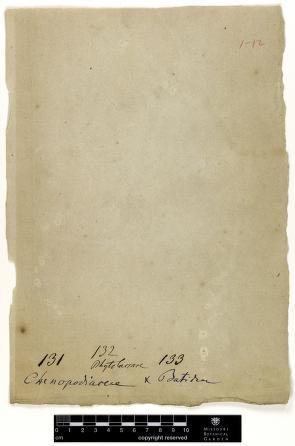 1-12
132
131 Phytolaccaceae 133
Chenopodiaceae & Batideae
0 1 2 3 4 5 6 7 8 9 10
cm copyright reserved
MISSOURI
BOTANICAL
GARDEN